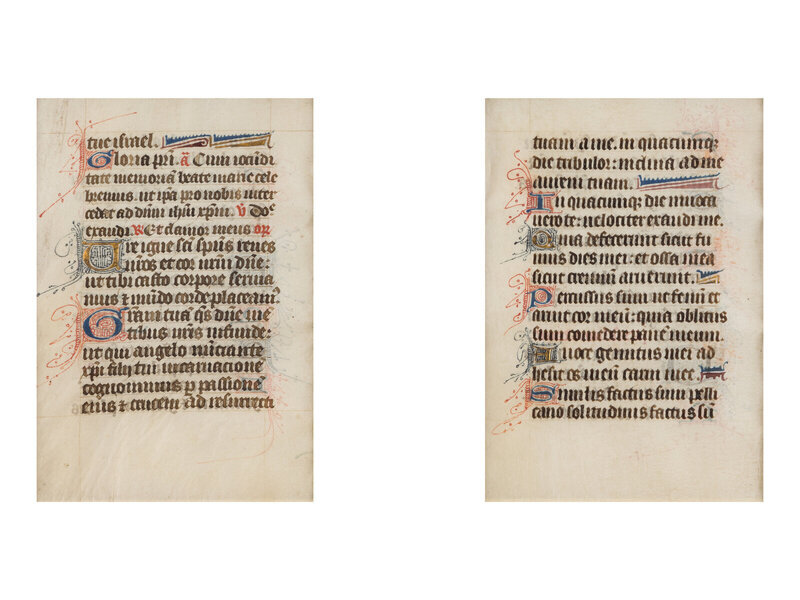 tue israel.
Gloria pri. a Cum iocundi
tate memoriā beate marie cele
bremus. ut ipa pro nobis inter
cedat ad dnm ihu xpm. V Doe
exaudi. R Et clamor meus or
Ure igne sci spirus renes
nr̄os et cor nr̄m dn̄e:
ut tibi casto corpore seruia
mus & mūdo corde placeam9.
Gr̄am tuā qs dn̄e mē
tibus nr̄is infunde:
ut qui angelo nūciante
xp̄i filij tui incarnacionē
cognouimus p passionē
eius & crucem ad resurrecti
tuam a me. in quacumq;
die tribulor: inclina ad me
aurem tuam.
In quacumq; die inuoca
uero te: uelociter exaudi me.
Quia defecerunt sicut fu
mus dies mei: et ossa mea
sicut cremiū aruerunt.
Percussus sum ut fenū et
aruit cor meū: quia oblitus
sum comedere panē meum.
A uoce gemitus mei ad
hesit os meū carni mee.
Similis factus sum pelli
cano solitudinis factus sū